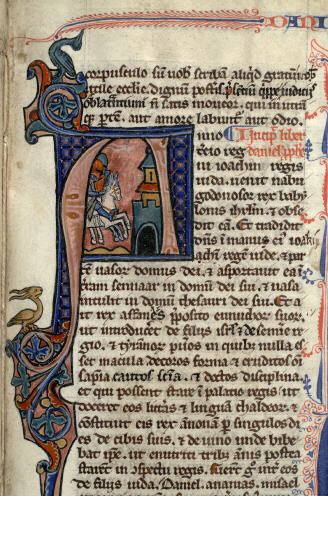 DANI
corpusculo sim uob seruam aliqd gratum ob
utile ecclie. dignum possis. psentium qippe iudiciis
oblatrantium n satis moueor. qui in utram
qz ptem. aut amore labunt aut odio.
nno Incip liber
tercio reg danielis pphe
ni ioachim regis
iuda. uenit nabu
godonosor rex baby
lonis ihrlm. & obse
dit ea. Et tradidit
dns i manus ei ioakim
regem iude. & par
te uasor domus dei. & asportauit ea i
tram sennaar in domu dei sui. & uasa
intulit in domu thesauri dei sui. Et a
it rex pposito eunuchor suor.
ut introduceret de filiis isrl & de semine re
gio. & tyrannor pueros in quibz nulla es
set macula decoros forma & eruditos oi
sapia cautos scia. & doctos disciplina.
et qui possent stare i palatio regis ut
doceret eos litas & lingua chaldeor. &
ostituit eis rex annona p singulos di
es de cibis suis. & de uino unde bibe
bat ipe. ut enutriti tribz annis postea
starent in ospectu regis. Fuert g int eos
de filiis iuda. Daniel. ananias. misael